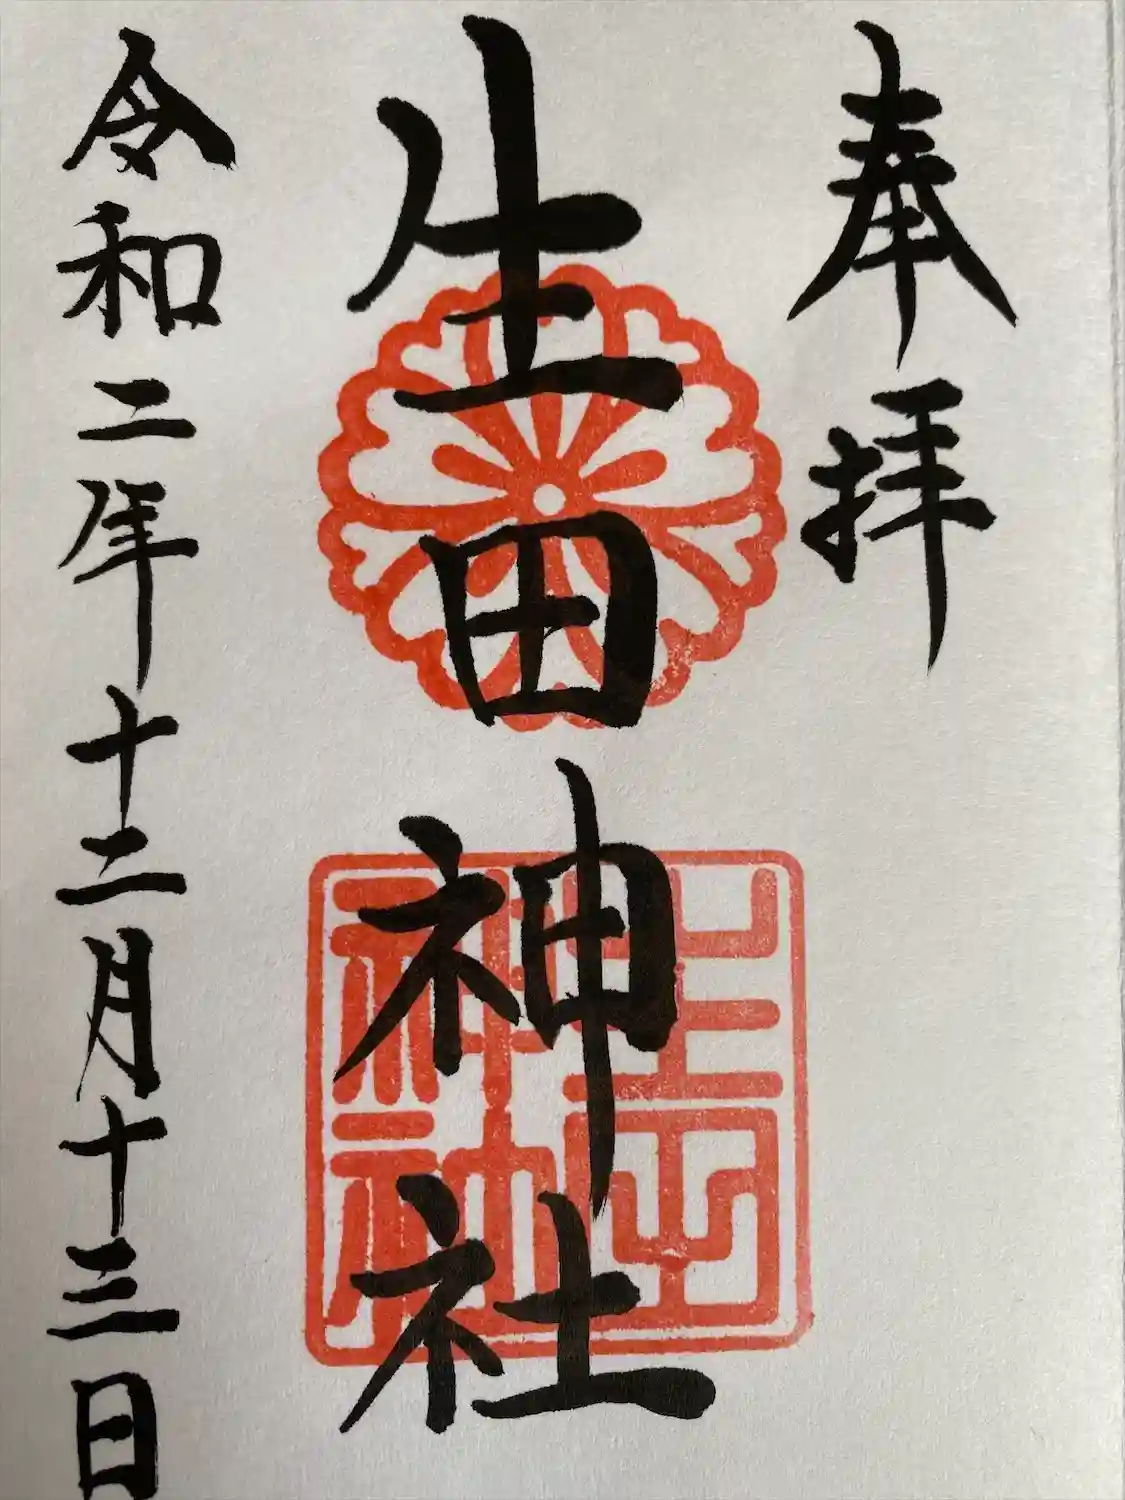 奉拝
生田神社
令和二年十二月十三日
生田神社